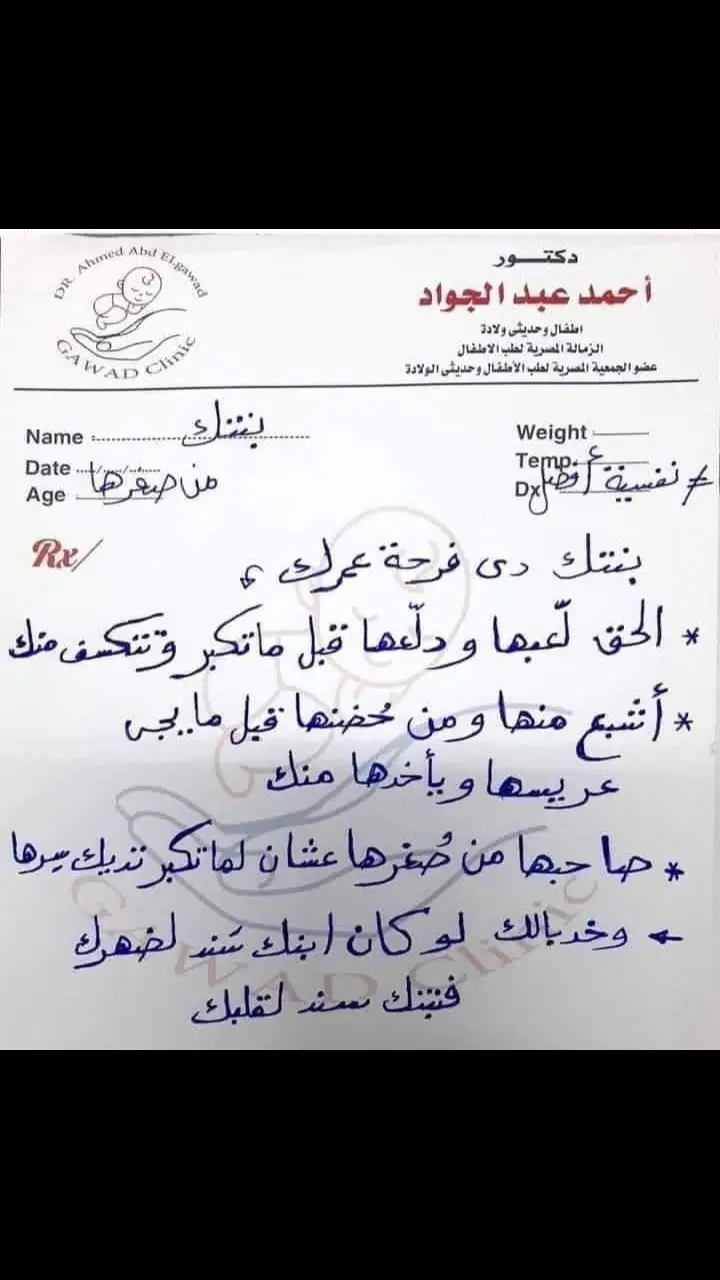 DR. Ahmed Abd El.gawad
GAWAD Clinic
دكتـــور
أحمد عبد الجواد
اطفال وحديثى ولادة
الزمالة المصرية لطب الاطفال
عضو الجمعية المصرية لطب الأطفال وحديثى الولادة
Name بنتك
Weight
Date
Temp.
Age من صغرها
Dx ≠ نفسية أفضل
Rx/
بنتك دى فرحة عمرك
* الحق لّعبها ودلّعها قبل ماتكبر وتتكسف منك
* أشبع منها ومن حُضنها قبل ما يجى
عريسها ويأخدها منك
* صاحبها من صُغرها عشان لما تكبر تديك سِرها
← وخد بالك لو كان ابنك سَند لضهرك
فبنتك سند لقلبك
GAWAD Clinic